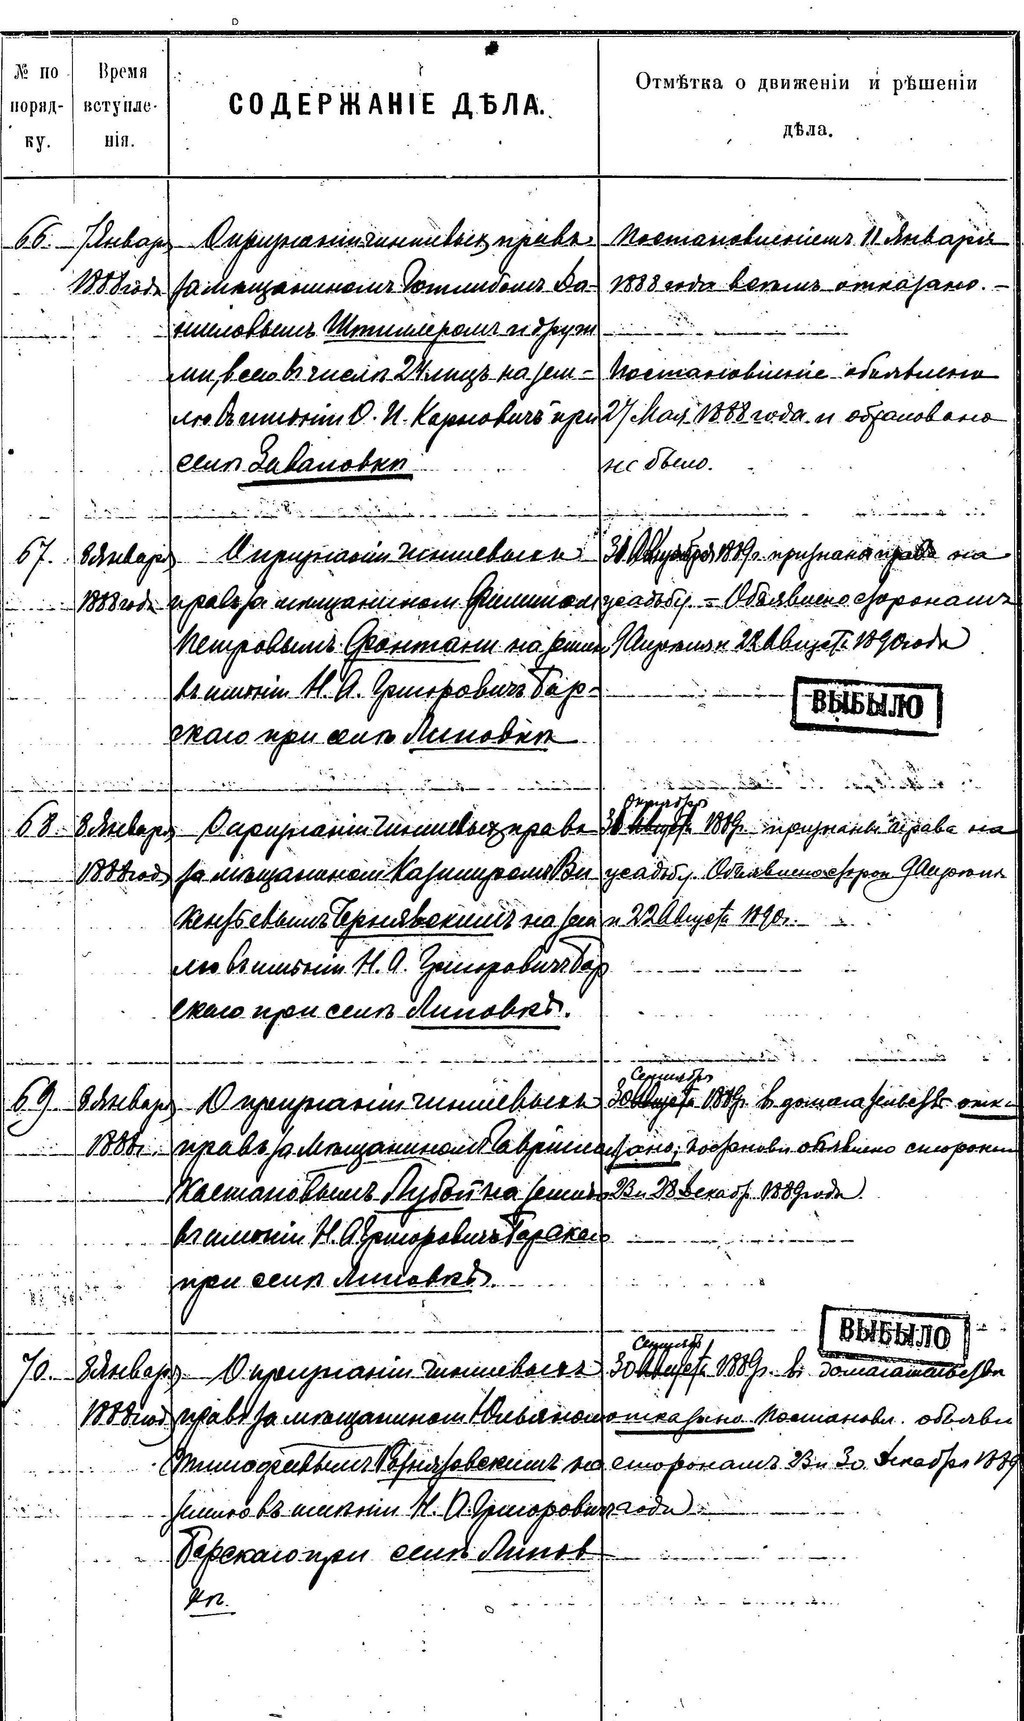 № по поряд- ку.
Время вступле- нія.
СОДЕРЖАНІЕ ДѢЛА.
Отмѣтка о движеніи и рѣшеніи дѣла.
66. 7 Январ 1888 года
О признаніи чиншевыхъ правъ
за мѣщаниномъ Готлибомъ Да-
ниловымъ Штиллеромъ и други
ми, всего въ числѣ 24 лицъ на зем-
лю въ имѣніи О. И. Карповичъ при
селѣ
Постановленіемъ 11 Января
1888 года всѣмъ отказано. –
Постановленіе объявлено
27 Мая 1888 года и обжаловано
не было.
67. 8 Января 1888 года
О признаніи чиншевыхъ
правъ за мѣщаниномъ Филипом
Петровымъ Фонтани на землю
въ имѣніи Н. А. Григоровичъ Бар-
скаго при селѣ Липовкѣ
1889 г. признаны права на
усадьбу – Объявлено сторонамъ
9 Апрѣля и 22 Августа 1890 года
ВЫБЫЛО
68. 8 Январ 1888 год
О признаніи чиншевыхъ правъ
за мѣщаниномъ Казимиромъ Ви
кентьевымъ Чернявскимъ на зем
лю въ имѣніи Н. А. Григоровичъ Бар
скаго при селѣ Липовкѣ.
Октября
30 Августа 1889 г. признаны права на
усадьбу. Объявлено сторон 9 Апрѣля
и 22 Августа 1890 г.
69. 8 Январ 1888 г.
О признаніи чиншевыхъ
правъ за мѣщаниномъ Гавріило
на землю
въ имѣніи Н. А. Григоровичъ Барскаго
при селѣ Липовкѣ.
Сентября
30 Августа 1889 г. въ домогательствѣ отка-
зано, постановл объявлено сторонам
23 и 28 Декабр 1889 года
ВЫБЫЛО
70. 8 Январ 1888 год
О признаніи чиншевыхъ
правъ за мѣщаниномъ Юльяном
Тимофеевымъ на
землю въ имѣніи Н. А. Григорович
Барскаго при селѣ Липов
кѣ.
Сентября
30 Августа 1889 г. въ домогательствѣ
отказано Постановл. объявл
сторонамъ 23 и 30 Декабря 1889
года